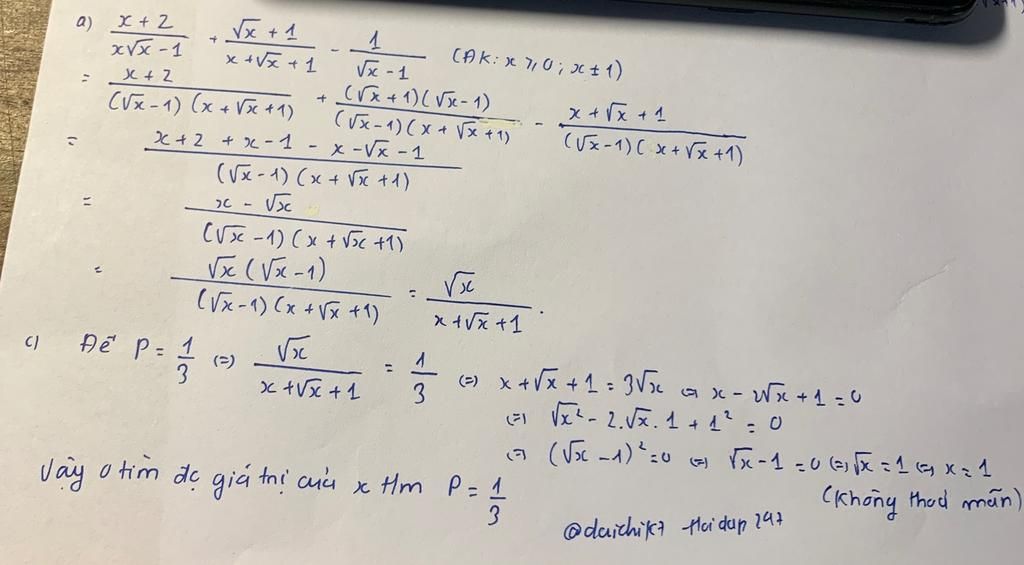 a) \frac{x+2}{x\sqrt{x}-1} + \frac{\sqrt{x}+1}{x+\sqrt{x}+1} - \frac{1}{\sqrt{x}-1} (ĐK: x ≥ 0; x ≠ 1)
= \frac{x+2}{(\sqrt{x}-1)(x+\sqrt{x}+1)} + \frac{(\sqrt{x}+1)(\sqrt{x}-1)}{(\sqrt{x}-1)(x+\sqrt{x}+1)} - \frac{x+\sqrt{x}+1}{(\sqrt{x}-1)(x+\sqrt{x}+1)}
= \frac{x+2+x-1-x-\sqrt{x}-1}{(\sqrt{x}-1)(x+\sqrt{x}+1)}
= \frac{x-\sqrt{x}}{(\sqrt{x}-1)(x+\sqrt{x}+1)}
= \frac{\sqrt{x}(\sqrt{x}-1)}{(\sqrt{x}-1)(x+\sqrt{x}+1)} = \frac{\sqrt{x}}{x+\sqrt{x}+1}.
c) Để P = \frac{1}{3} (=) \frac{\sqrt{x}}{x+\sqrt{x}+1} = \frac{1}{3} (=) x+\sqrt{x}+1 = 3\sqrt{x} (=) x-2\sqrt{x}+1=0
(=) \sqrt{x}^2 - 2.\sqrt{x}.1 + 1^2 = 0
(=) (\sqrt{x}-1)^2 = 0 (=) \sqrt{x}-1 = 0 (=) \sqrt{x} = 1 (=) x = 1
(không thoả mãn)
Vậy 0 tìm đc giá trị của x t/m P = \frac{1}{3}
@daichik7 Hoidap247